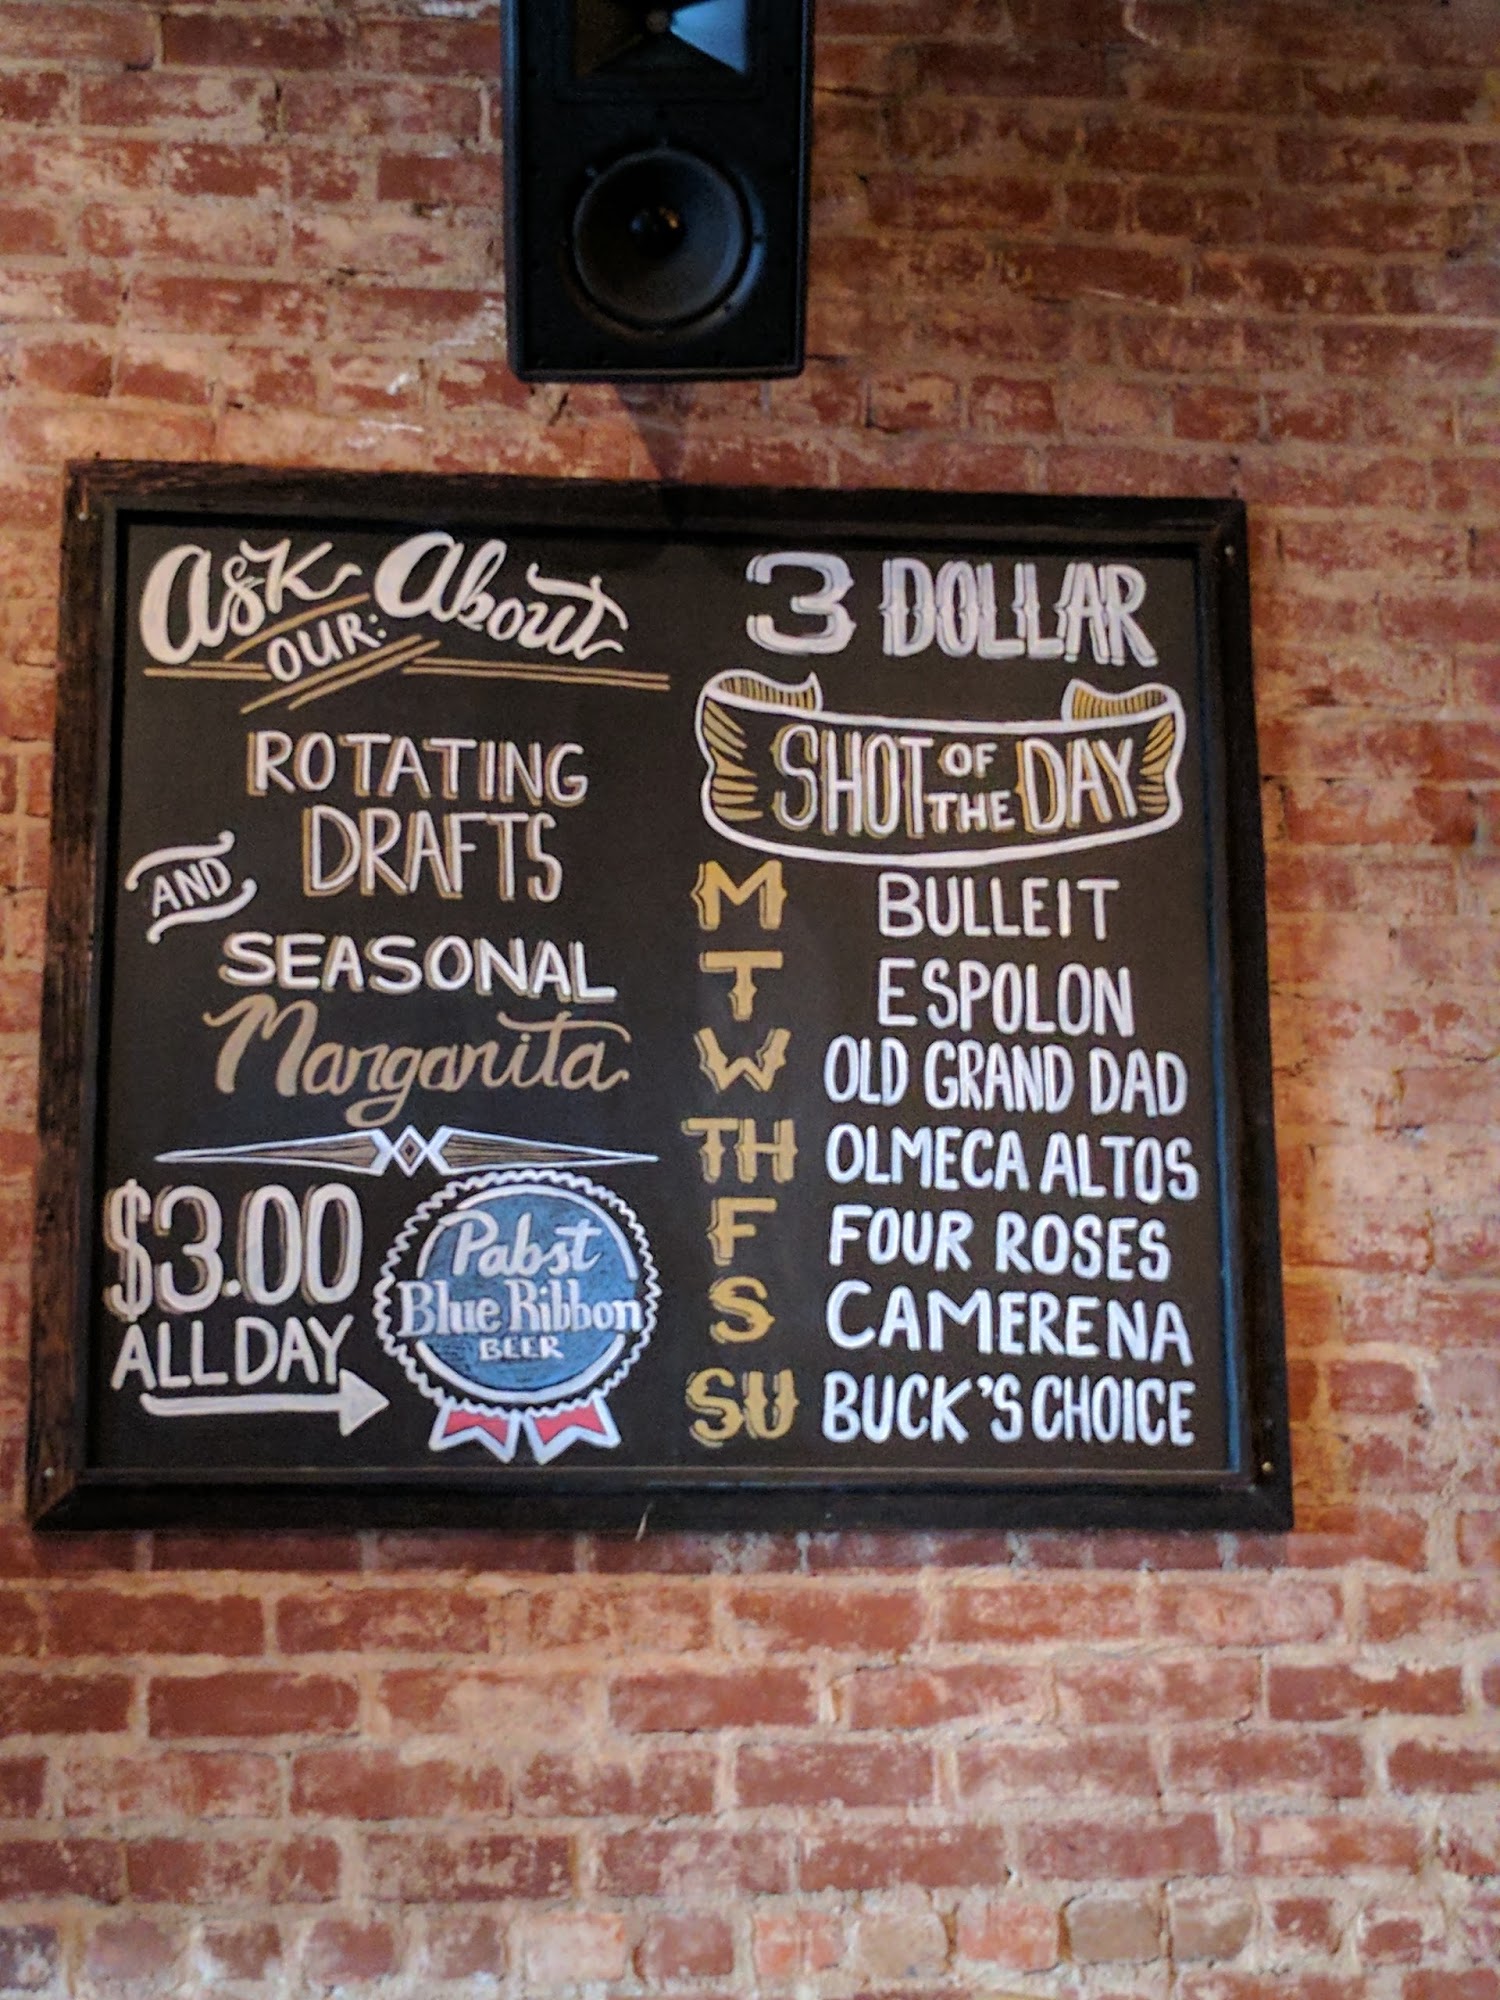 Ask About
OUR:
ROTATING
DRAFTS
AND
SEASONAL
Margarita
$3.00
ALL DAY
Pabst
Blue Ribbon
BEER
3 DOLLAR
SHOT OF THE DAY
M BULLEIT
T ESPOLON
W OLD GRAND DAD
TH OLMECA ALTOS
F FOUR ROSES
S CAMERENA
SU BUCK'S CHOICE